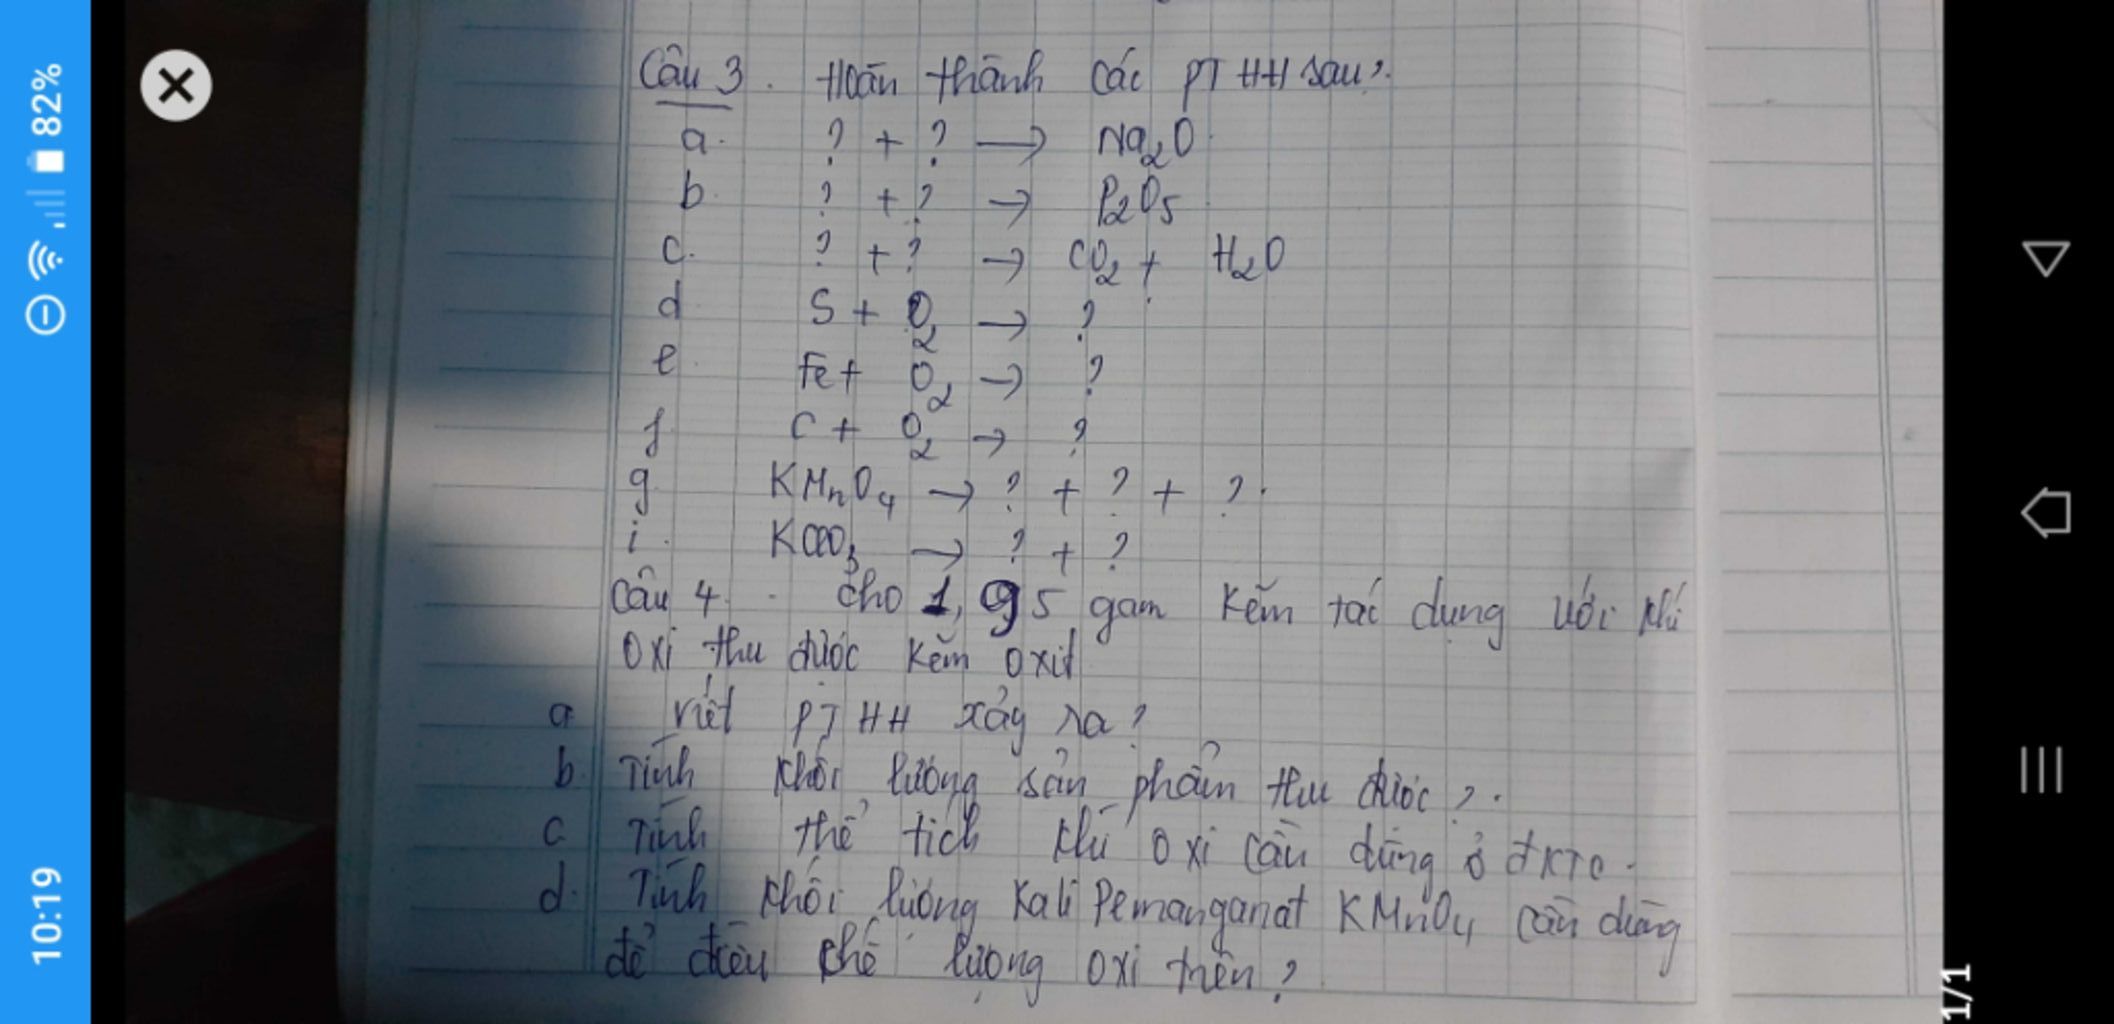 Câu 3. Hoàn thành các PTHH sau?
a. ? + ? → Na2O
b. ? + ? → P2O5
c. ? + ? → CO2 + H2O
d S + O2 → ?
e. Fe + O2 → ?
f C + O2 → ?
g. KMnO4 → ? + ? + ?.
i. KClO3 → ? + ?
Câu 4. Cho 1,95 gam Kẽm tác dụng với khí
Oxi thu được Kẽm oxit
a Viết PTHH xảy ra?
b. Tính khối lượng sản phẩm thu được?.
c Tính thể tích khí oxi cần dùng ở đKTC.
d. Tính khối lượng Kali Pemanganat KMnO4 cần dùng
để điều chế lượng oxi trên?
82%
10:19
1/1